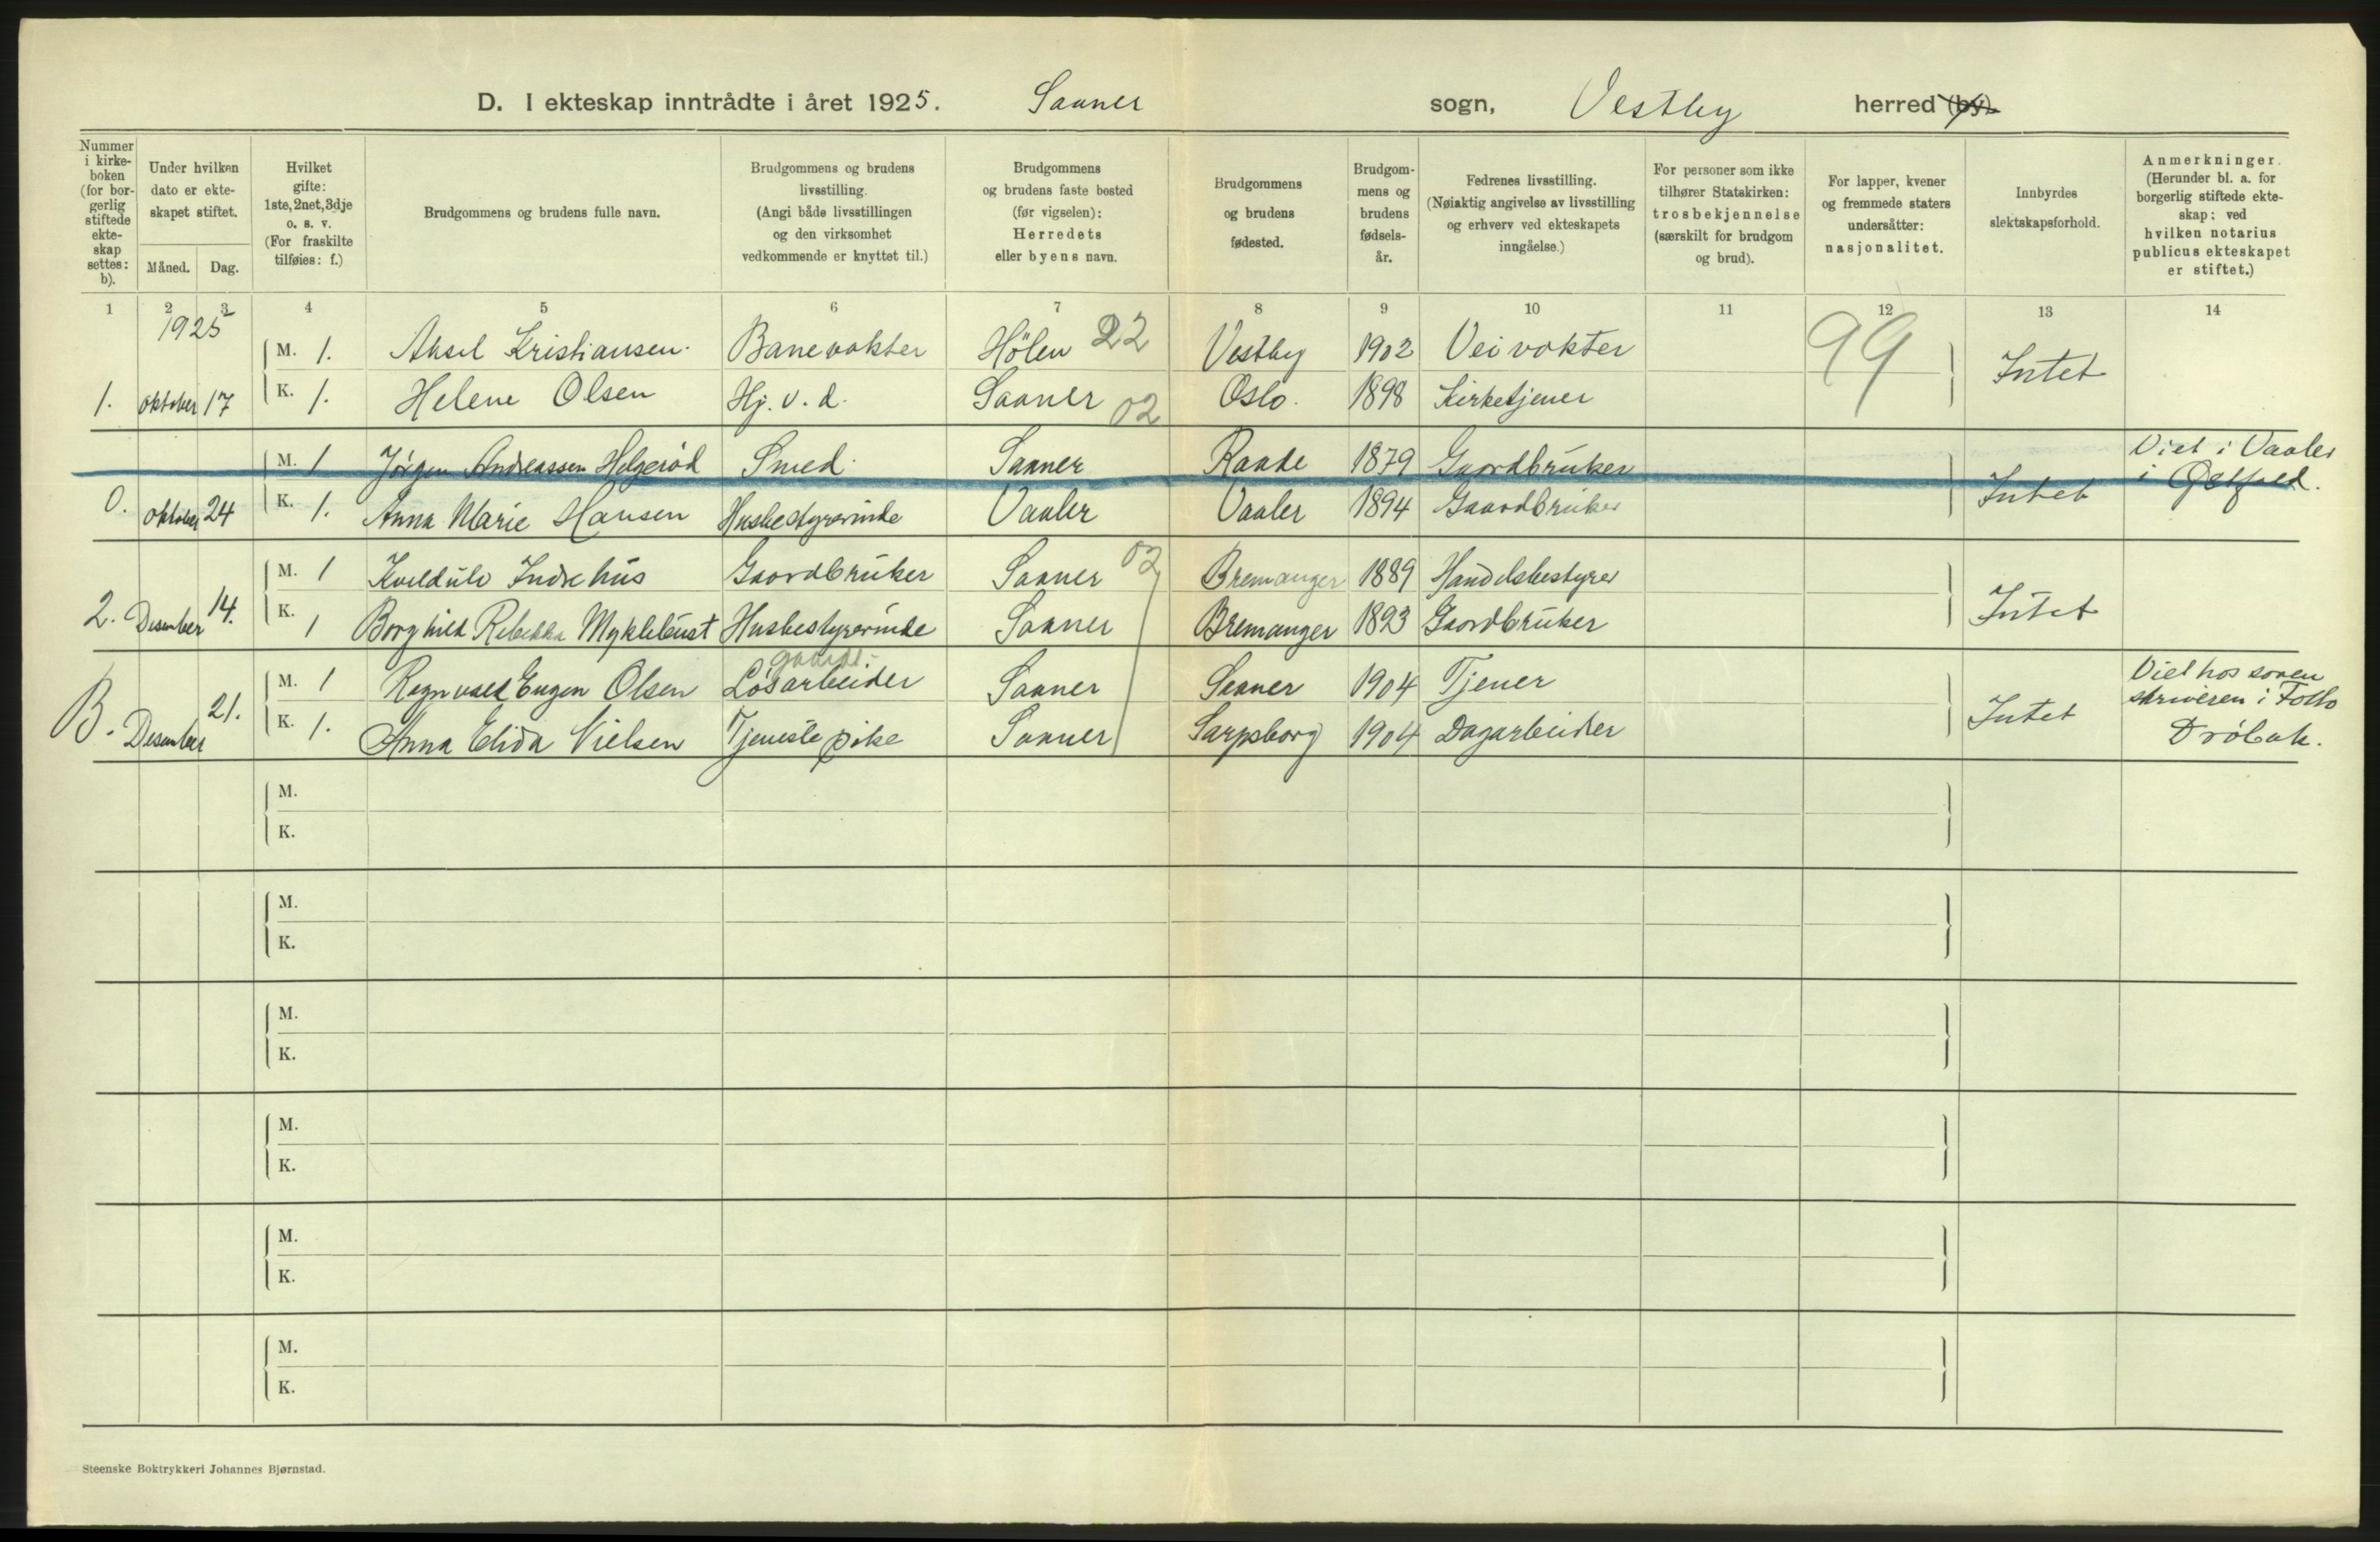 D. I ekteskap inntrådte i året 1925. Saaner sogn, Vestby herred (by).
Nummer i kirke-boken (for bor-gerlig stiftede ekte-skap settes: b).
Under hvilken dato er ekte-skapet stiftet.
Måned. Dag.
Hvilket gifte: 1ste, 2net, 3dje o. s. v. (For fraskilte tilføies: f.)
Brudgommens og brudens fulle navn.
Brudgommens og brudens livsstilling. (Angi både livsstillingen og den virksomhet vedkommende er knyttet til.)
Brudgommens og brudens faste bosted (før vigselen): Herredets eller byens navn.
Brudgommens og brudens fødested.
Brudgom-mens og brudens fødsels-år.
Fedrenes livsstilling. (Nøiaktig angivelse av livsstilling og erhverv ved ekteskapets inngåelse.)
For personer som ikke tilhører Statskirken: trosbekjennelse (særskilt for brudgom og brud).
For lapper, kvener og fremmede staters undersåtter: nasjonalitet.
Innbyrdes slektskapsforhold.
Anmerkninger. (Herunder bl. a. for borgerlig stiftede ekte-skap: ved hvilken notarius publicus ekteskapet er stiftet.)
1 2 3 4 5 6 7 8 9 10 11 12 13 14
1925
M. 1. Aksel Kristiansen. Banevokter Hölen 22 Vestby 1902 Veivokter 99 Intet
1. oktober 17 K. 1. Helene Olsen Hj. v. d. Saaner 02 Oslo. 1898 Kirketjener
M. 1 Jörgen Andreassen Helgeröd Smed. Saaner Raade 1879 Gaardbruker Viet i Vaaler i Østfold.
0. oktober 24 K. 1. Anna Marie Hansen Husbestyrerinde Vaaler Vaaler 1894 Gaardbruker Intet
M. 1 Kveldulv Indrehus Gaardbruker Saaner 02 Bremanger 1889 Handelsbestyrer
2. Desember 14. K. 1 Borghild Rebekka Myklebust Husbestyrerinde Saaner Bremanger 1893 Gaardbruker Intet
M. 1 Ragnvald Eugen Olsen Løsarbeider Saaner Saaner 1904 Tjener Viet hos soren skriveren i Follo Dröbak.
B. Desember 21. K. 1. Anna Elida Nielsen Tjenestepike Saaner Sarpsborg 1904 Dagarbeider Intet
M.
K.
M.
K.
M.
K.
M.
K.
M.
K.
M.
K.
Steenske Boktrykkeri Johannes Bjørnstad.